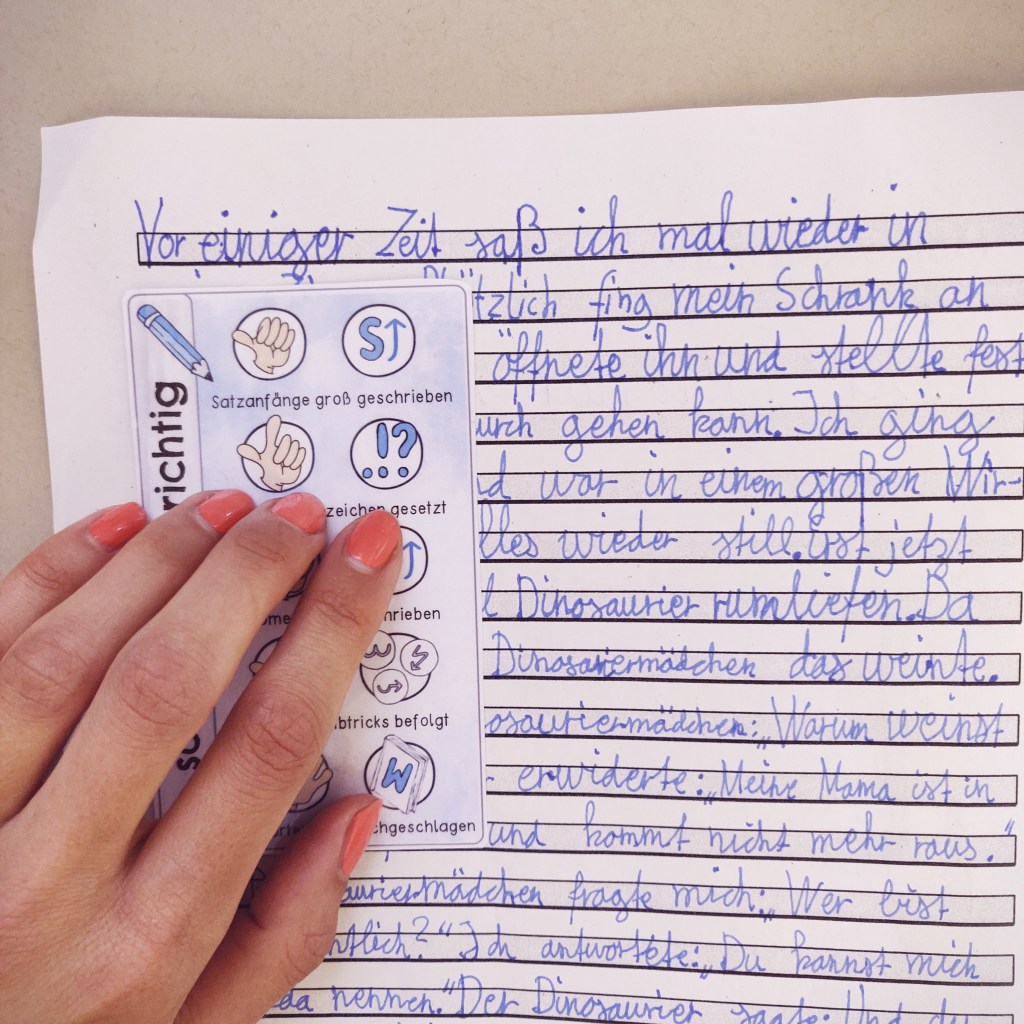 Vor einiger Zeit saß ich mal wieder in
tzlich fing mein Schrank an
öffnete ihn und stellte fest
urch gehen kann. Ich ging
d war in einem großen Wir-
lles wieder still. Erst jetzt
l Dinosaurier rumliefen. Da
Dinosauriermädchen das weinte.
osauriermädchen: „Warum weinst
- erwiderte: „Meine Mama ist in
und kommt nicht mehr raus."
auriermädchen fragte mich: „Wer bist
ntlich?" Ich antwortete: „Du kannst mich
da nehmen." Der Dinosaurier sagte: Und du
richtig
Satzanfänge groß geschrieben
zeichen gesetzt
rieben
btricks befolgt
chgeschlagen